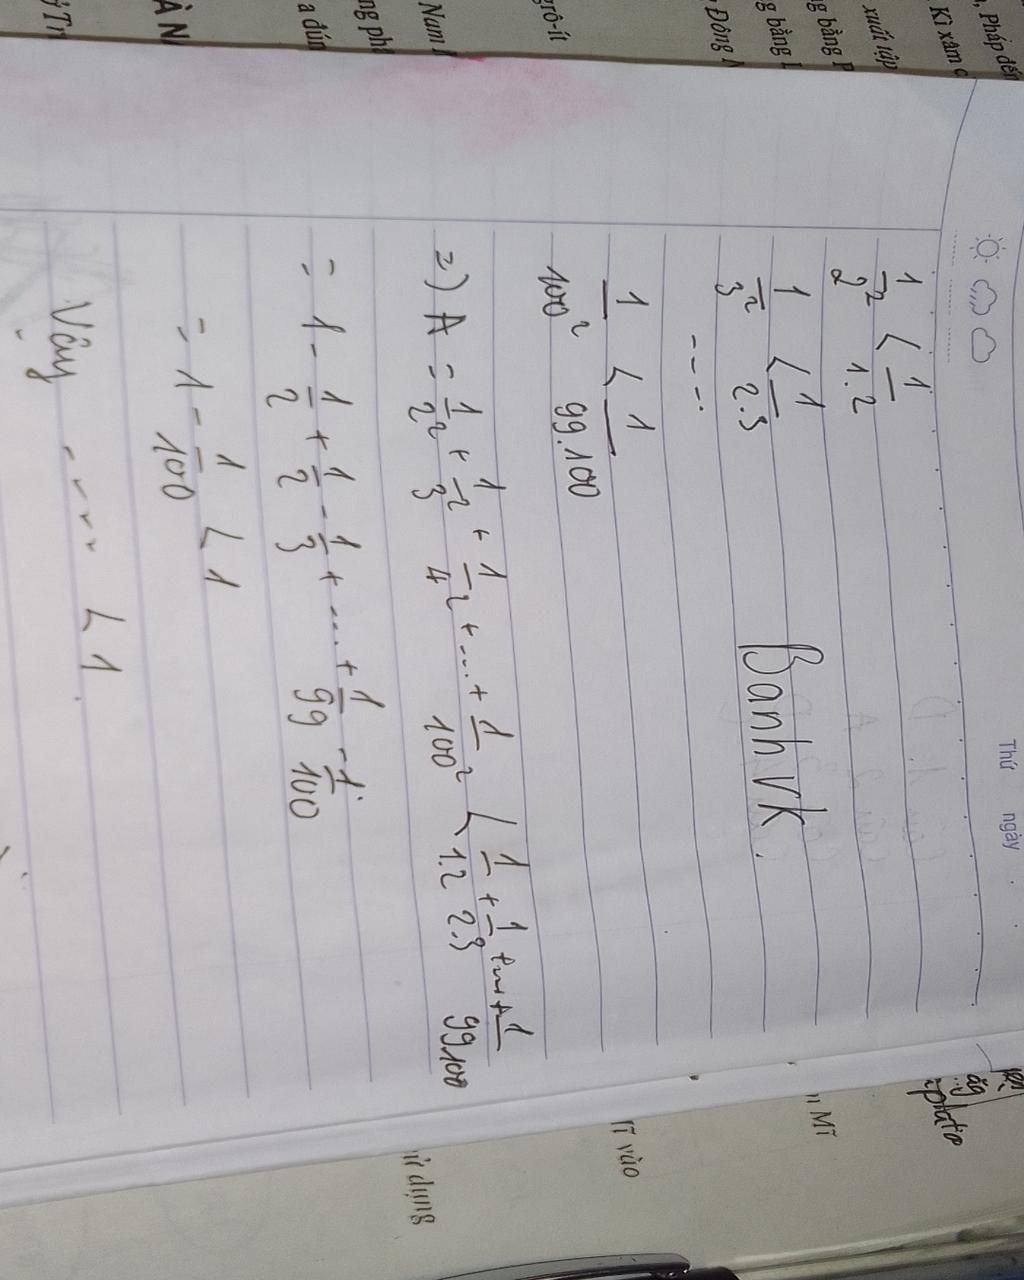 Thứ ngày
1/2² < 1/1.2
1/3² < 1/2.3
Banh vk.
....
1/100² < 1/99.100
=) A = 1/2² + 1/3² + 1/4² + ... + 1/100² < 1/1.2 + 1/2.3 + ... + 1/99.100
= 1 - 1/2 + 1/2 - 1/3 + .... + 1/99 - 1/100
= 1 - 1/100 < 1
Vậy .... < 1
, Pháp đến
Kì xâm c
xuất tập
g bằng P
g bằng L
Đông
grô-ít
Nam
ng ph
a đún
ÀN
n Mĩ
Tĩ vào
dụng